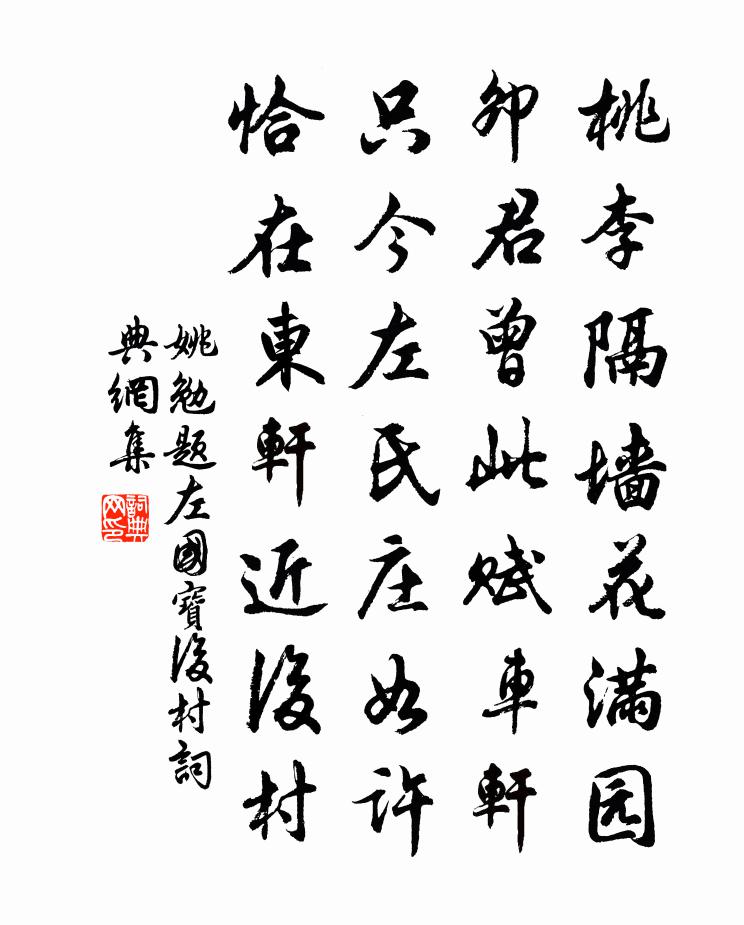 桃李隔墙花满园
卯君曾此赋車軒
只今左氏庄如许
恰在東軒近後村
姚勉题左國寶後村詞
典網集
詞典网印